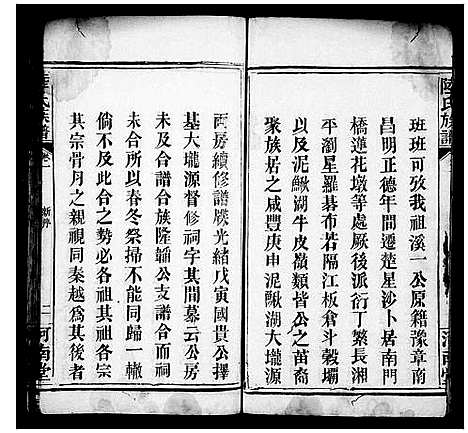 班班可攷我祖溪一公原籍豫章南
昌明正德年間遷楚星沙卜居南門
橋蓮花墩等處厥後派衍丁繁長湘
平瀏星羅碁布若隔江板倉斗穀壩
以及泥鰍湖牛皮嶺類皆公之苗裔
聚族居之咸豐庚申泥鰍湖大壠源
兩房續修譜牒光緒戊寅國貴公擇
基大壠源督修祠宇其間慕云公房
未及合譜合族隆輪公支譜合而祠
未合所以春冬祭掃不能同歸一轍
倘不及此合之勢必各祖其祖各宗
其宗骨月之親視同秦越為其後者
氏族譜
卷一
二
河南堂
氏族譜